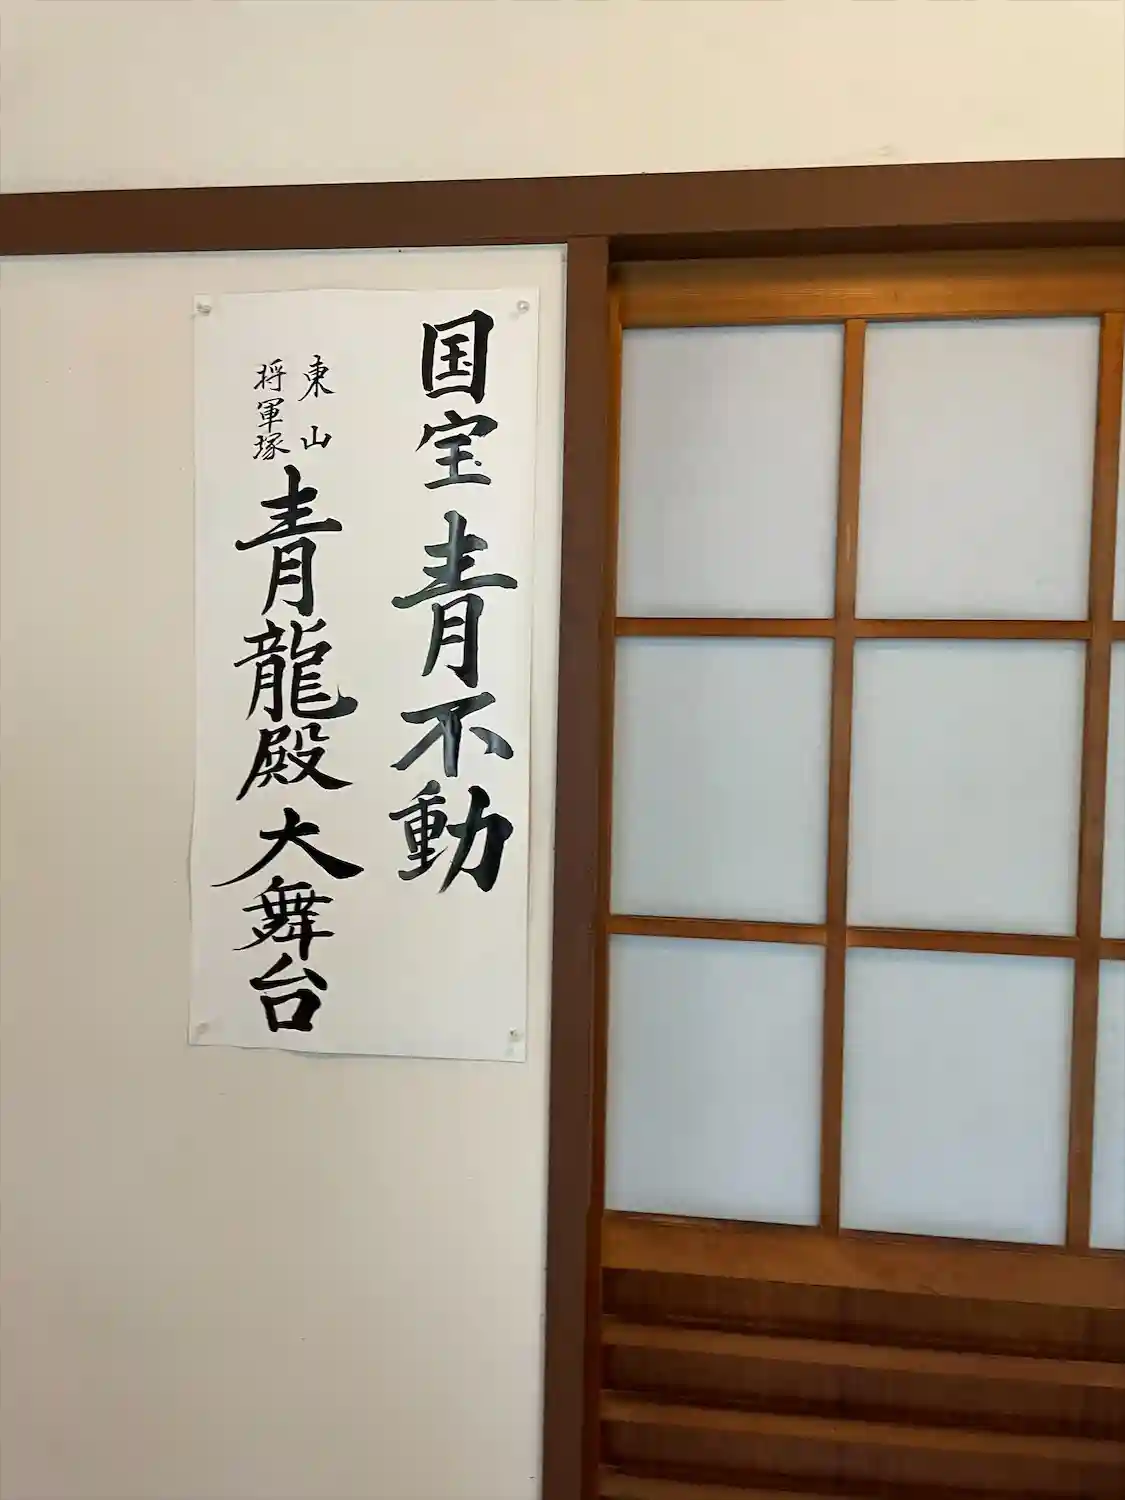 国宝 青不動
東山
将軍塚
青龍殿 大舞台